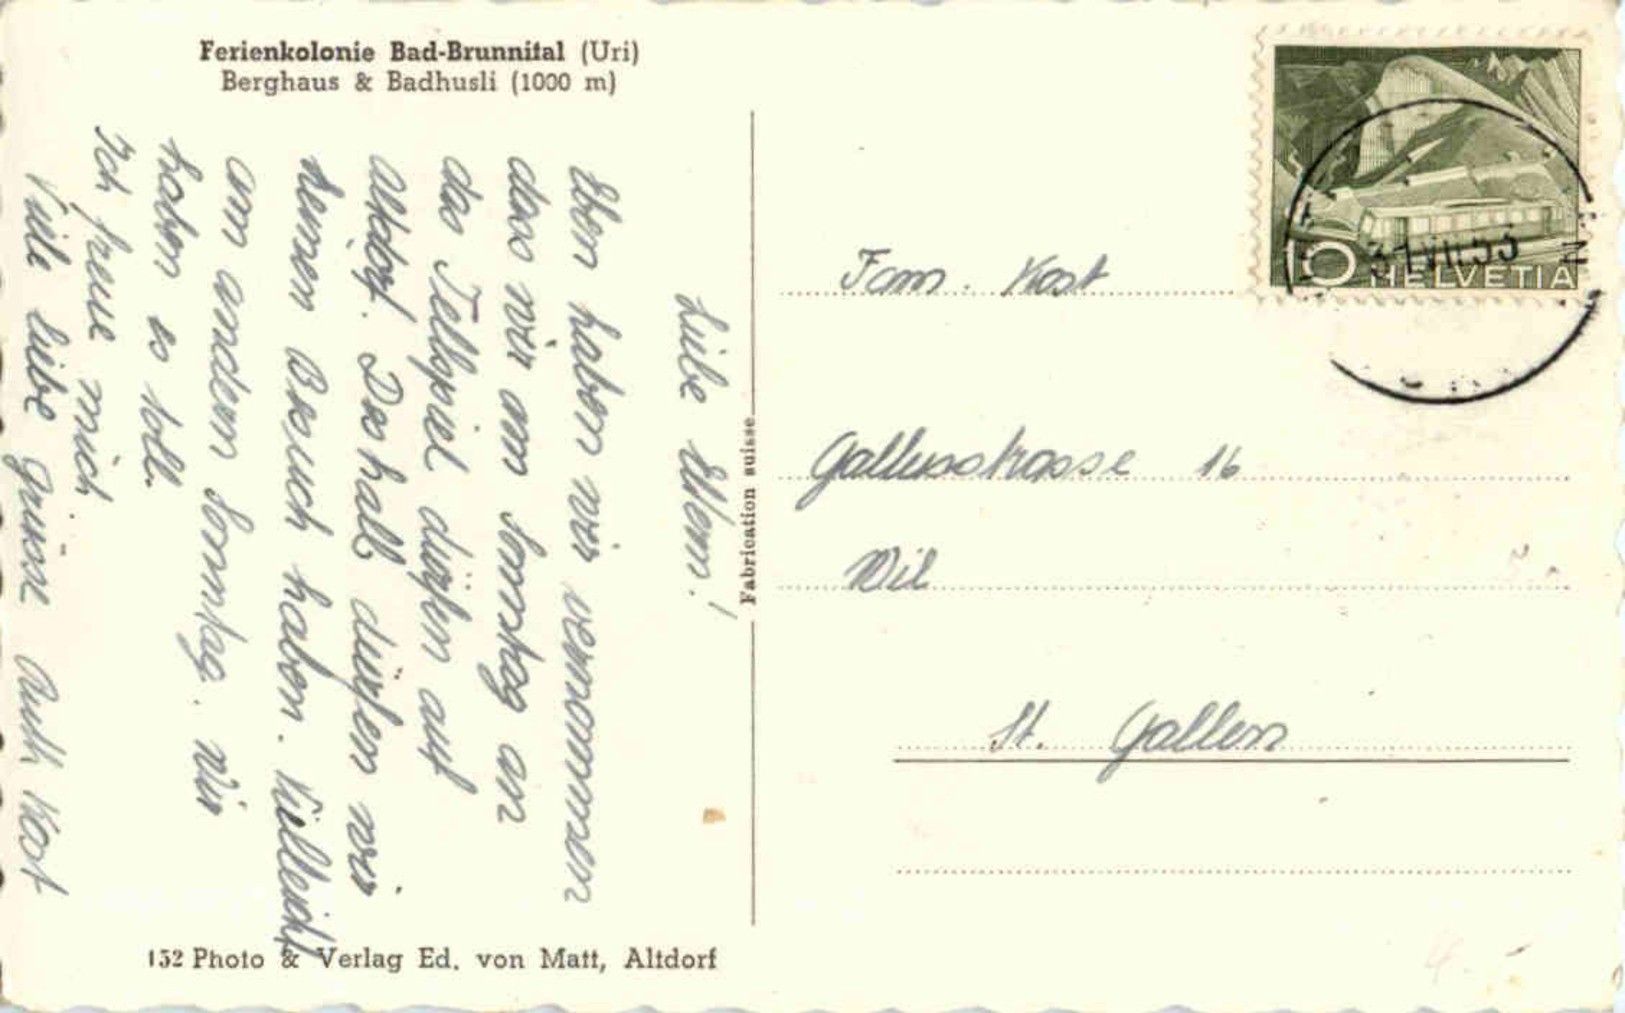 Ferienkolonie Bad-Brunnital (Uri)
Berghaus & Badhusli (1000 m)
Liebe Eltern!
Eben haben wir vernommen
dass wir am Sonntag an
das Tellspiel dürfen auf
Altdorf. Deshalb dürfen wir
keinen Besuch haben. Vielleicht
am andern Sonntag. Wir
haben es toll.
Ich freue mich.
Viele liebe Grüsse Ruth Kost
Fabrication suisse
Fam. Kost
Gallusstrasse 16
Wil
St. Gallen
10 HELVETIA
31.VII.53
152 Photo & Verlag Ed. von Matt, Altdorf